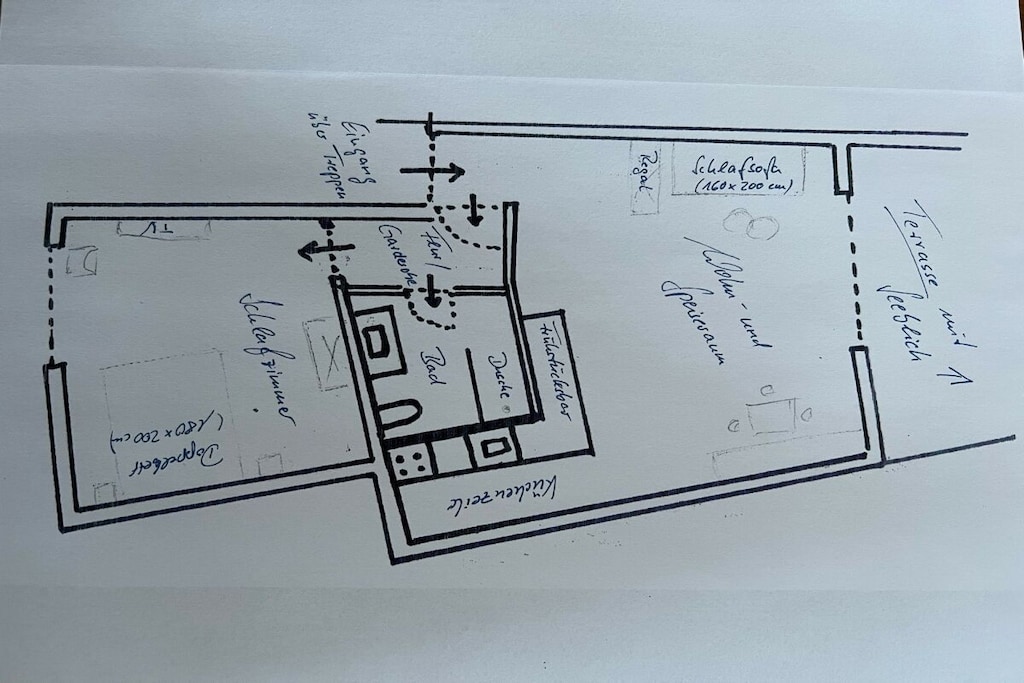 Eingang
über Treppen
Regal
Schlafsofa
(160 x 200 cm)
Terrasse mit
Seeblick ↑
Wohn- und
Speiseraum
TV
Flur/
Garderobe
Schlafzimmer
Bad
Dusche
Frühstücksbar
Doppelbett
(180 x 200 cm)
Küchenzeile